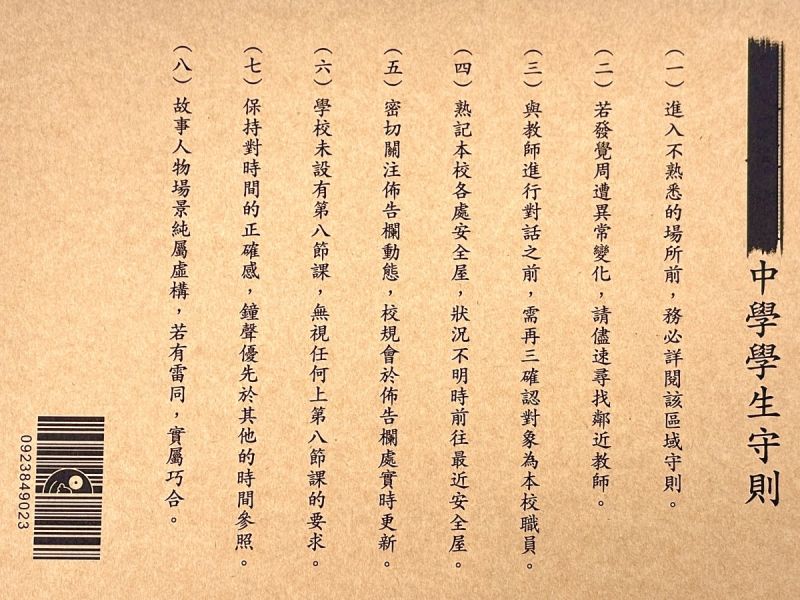 中學學生守則
(一) 進入不熟悉的場所前，務必詳閱該區域守則。
(二) 若發覺周遭異常變化，請儘速尋找鄰近教師。
(三) 與教師進行對話之前，需再三確認對象為本校職員。
(四) 熟記本校各處安全屋，狀況不明時前往最近安全屋。
(五) 密切關注佈告欄動態，校規會於佈告欄處實時更新。
(六) 學校未設有第八節課，無視任何上第八節課的要求。
(七) 保持對時間的正確感，鐘聲優先於其他的時間參照。
(八) 故事人物場景純屬虛構，若有雷同，實屬巧合。
0923849023